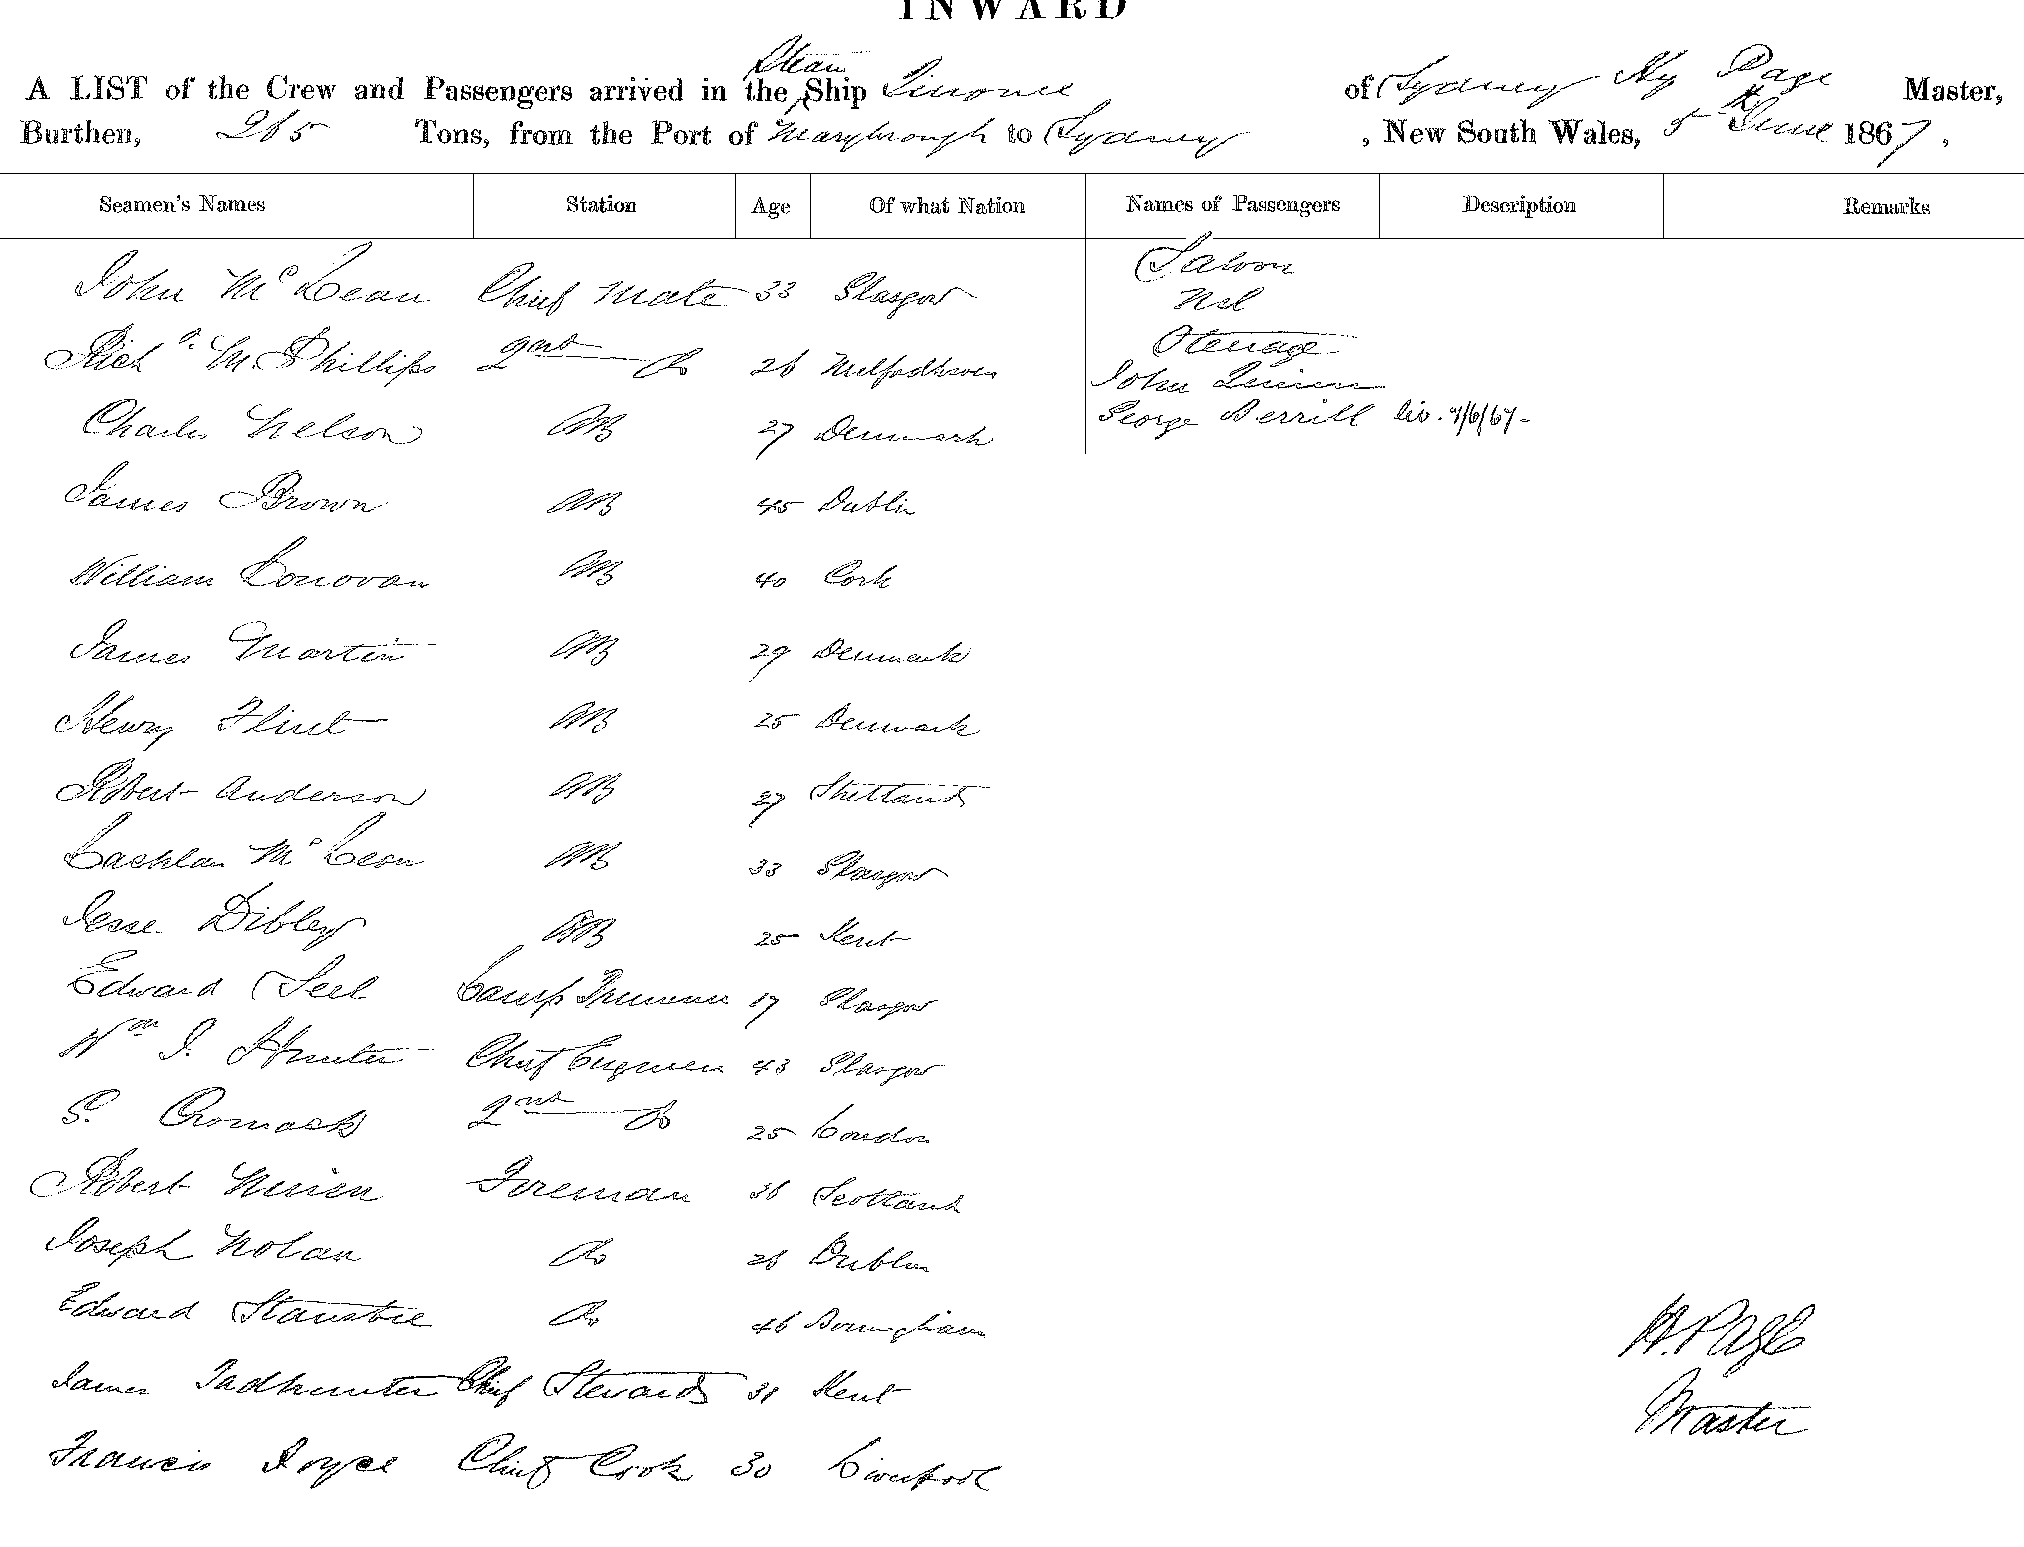 INWARD
A LIST of the Crew and Passengers arrived in the Steam Ship of Sydney Hy Page Master,
Burthen, 265 Tons, from the Port of Marybrough to Sydney, New South Wales, 5th June 1867,
Seamen's Names Station Age Of what Nation Names of Passengers Description Remarks
Saloon
John McLean Chief Mate 33 Glasgow
Nil
Steerage
Richd. M. Phillips 2nd Do 26 Milfordhaven
John
George Berrill liv. 7/6/67-
Charles Nelson AB 27 Denmark
James Brown AB 45 Dublin
William Donovan AB 40 Cork
James Martin AB 29 Denmark
Henry Flint AB 25 Denmark
Robert Anderson AB 27 Shetland
Lachlan McLean AB 33 Glasgow
Jesse Dibley AB 25 Kent
Edward Seel Lamp Trimmer 17 Glasgow
Wm J. Hunter Chief Engineer 43 Glasgow
Cromack 2nd Do 25 London
Robert Niven Fireman 36 Scotland
Joseph Nolan Do 26 Dublin
Edward Do 46
James Tadhunter Chief Steward 31 Kent
Francis Joyce Chief Cook 30 Liverpool
H. Page
Master